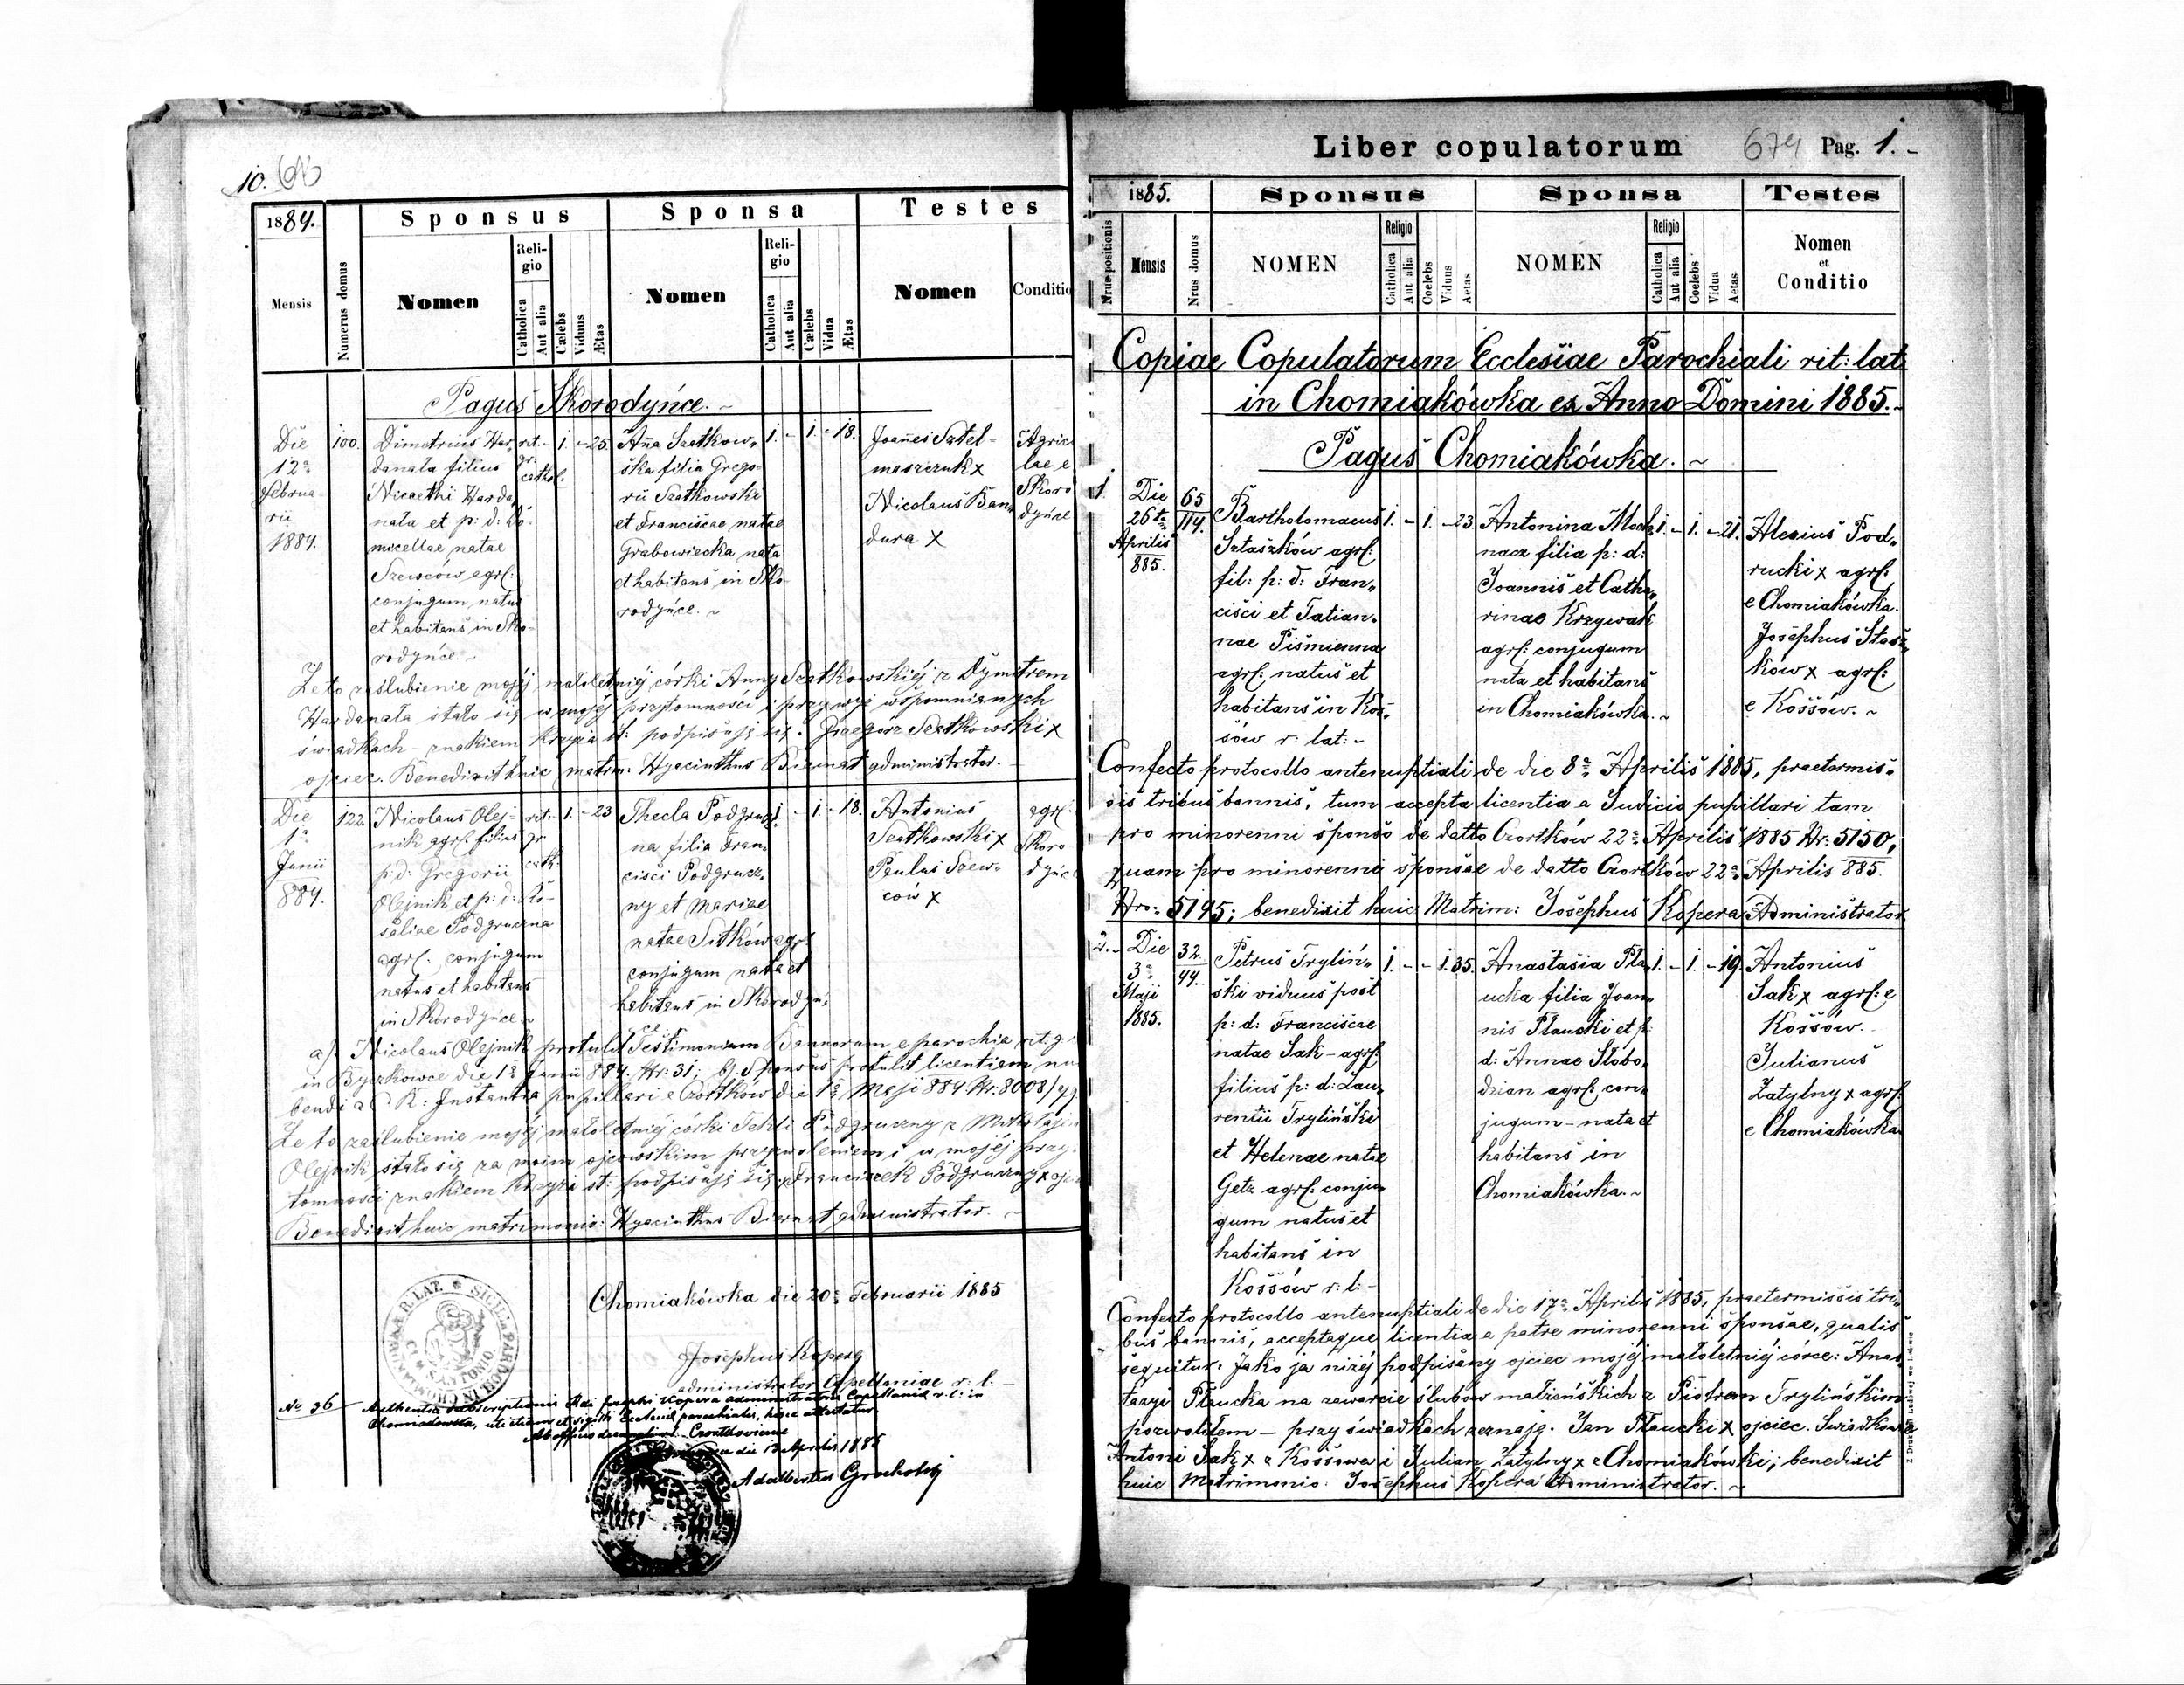 10.
1884.
Sponsus
Sponsa
Testes
Mensis
Numerus domus
Nomen
Religio
Catholica
Aut alia
Cælebs
Viduus
Ætas
Nomen
Religio
Catholica
Aut alia
Cælebs
Vidua
Ætas
Nomen
Conditio
Pagus Skorodyńce. ~
Die
12a
Februa-
rii
1884.
100.
Dimetrius Har-
danata filius
Nicaethi Harda
nata et p: d: Do-
micellae natae
Szewców agrf:
conjugum natus
et habitans in Sko-
rodyńce. ~
rit.
gr.
cathol.
1. - 25.
Anna Szatkow-
ska filia Grego-
rii Szatkowski
et Franciscae natae
Grabowiecka nata
et habitans in Sko-
rodyńce. ~
1. - 1. - 18.
Joannes Satel-
maszczuk x
Nicolaus Ban-
dura x
Agric
lae e
Skoro
dyńce
Że to zaślubienie mojéj małoletniéj córki Anny Szatkowskiéj z Dymitrem
Hardanata stało się w mojéj przytomności i przy wyż wspomnianych
świadkach - znakiem krzyża st: podpisuję się. Grzegórz Szatkowski x
ojciec. Benedixit huic matrim: Hyacinthus Biernat administrator.
Die
1a
Junii
884.
122.
Nicolaus Olej-
nik agrf. filius
p: d: Gregorii
Olejnik et p: d: Ro-
saliae Podgruczna
agrf. conjugum
natus et habitans
in Skorodyńce ~
rit.
gr
cath.
1. - 23
Thecla Podgrucz-
na filia Fran-
cisci Podgrucz-
ny et Mariae
natae Sitków agrf
conjugum nata et
habitans in Skorodyń-
ce.
1. - 18.
Antonius
Szatkowski x
Paulus Szew-
ców x
agrf.
Skoro
dyńc
a). Nicolaus Olejnik protulit Testimonium Bannorum e parochia rit. gr
in Byczkowce die 1a Junii 884. Nr: 31; b). Sponsus protulit licentiam nu
bendi a C. K: Instantia pupillari e Czortków die 1a Maji 884 Nr: 8008/
Że to zaślubienie mojéj małoletniéj córki Tekli Podgruczny z Mikołajem
Olejnik stało się za moim ojcowskim przyzwoleniem i w mojéj przy-
tomności znakiem krzyża st: podpisuję się. Franciszek Podgruczny x oj
Benedixit huic matrimonio: Hyacinthus Biernat administrator. ~
Chomiakówka die 20a Februarii 1885
Josephus Kopera
administrator Capellaniae r: l: -
No 36
Chomiakówka, uti etiam et sigilli Ecclesiae parochialis, hisce attestatur
Ab officio decanali r. l. Czortkoviense
die 13 Aprilis 1885
Adalbertus Grocholski
Liber copulatorum
674
Pag. 1. -
1885.
Sponsus
Sponsa
Testes
Nrus positionis
Mensis
Nrus domus
NOMEN
Religio
Catholica
Aut alia
Coelebs
Viduus
Aetas
NOMEN
Religio
Catholica
Aut alia
Coelebs
Vidua
Aetas
Nomen
et
Conditio
Copiae Copulatorum Ecclesiae Parochiali rit: lat
in Chomiakówka ex Anno Domini 1885. ~
Pagus Chomiakówka. ~
1.
Die
26ta
Aprilis
885.
65
114.
Bartholomaeus
Sztaszków agrf:
fil: p: d: Fran-
cisci et Tatian-
nae Piśmienna
agrf: natus et
habitans in Kos-
sów r: lat: ~
1. - 1. - 23.
Antonina Moch-
nacz filia p: d:
Joannis et Catha-
rinae Krzywak
agrf: conjugum
nata et habitans
in Chomiakówka. ~
1. - 1. - 21.
Alexius Pod-
rucki x agrf:
e Chomiakówka.
Josephus Stasz-
ków x agrf:
e Kossów. ~
Confecto protocollo antenuptiali de die 8a Aprilis 1885, praetermis-
sis tribus bannis, tum accepta licentia a Judicio pupillari tam
pro minorenni sponso de datto Czortków 22a Aprilis 1885 Nr: 5150;
quam pro minorenni sponsae de datto Czortków 22a Aprilis 885.
Nro: 5195; benedixit huic Matrim: Josephus Kopera Administrator
2. -
Die
3a
Maji
1885.
32
44.
Petrus Tryliń-
ski viduus post
p: d: Franciscae
natae Sak - agrf:
filius p: d: Lau-
rentii Tryliński
et Helenae natae
Getz agrf: conju-
gum natus et
habitans in
Kossów r: l: -
1. - - 1. 35.
Anastasia Pła-
ucka filia Joan-
nis Płaucki et p:
d: Annae Słobo-
dzian agrf: con-
jugum - nata et
habitans in
Chomiakówka. ~
1. - 1. - 19.
Antonius
Sak x agrf: e
Kossów.
Julianus
Zatylny x agrf:
e Chomiakówka
Confecto protocollo antenuptiali de die 17a Aprilis 1885, praetermissis tri-
bus bannis, acceptaque licentia a patre minorenni sponsae, qualis
sequitur: Jako ja niżéj podpisany ojciec mojéj małoletniéj córce: Anas-
tazyi Płaucka na zawarcie ślubów małżeńskich z Piotrem Trylińskim
pozwoliłem - przy świadkach zeznaję. Jan Płaucki x ojciec. Świadkowie
Antoni Sak x z Kossowa i Julian Zatylny x z Chomiakówki; benedixit
huic Matrimonio: Josephus Kopera Administrator. ~